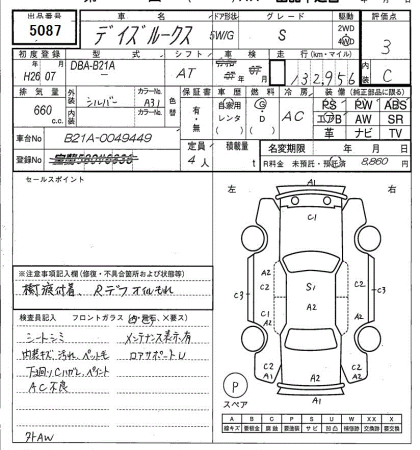 出品番号 車名 ドア形状 グレード 駆動 評価点
5087 デイズルークス 5W/G S 2WD 4WD 3
初度登録 型式 シフト 車検 走行(km・マイル) 内装
H26 年 07 月 DBA-B21A AT 132,956 C
排気量 外装 カラーNo. 色替 保証書 車歴 燃料 冷房 装備(純正部品に限る)
660 c.c. シルバー A31 有・無 自家用 レンタ G・D AC PS PW ABS
内装 カラーNo. エアB AW SR
革 ナビ TV
車台No B21A-0049449 定員 積載量 名変期限 年 月 日
登録No 4人 t R料金 未預託・預託済 8,860円
セールスポイント
左 右
A1
C1
A2 C2
C3 A2 S1 C2 C3
C1 A2 A2
C2 C2
A1 A2 A1
A1
※注意事項記入欄(修復・不具合箇所および状態等)
樹液付着、Rデフオイルもれ
検査員記入 フロントガラス
シートシミ メンテナンス表示有
内装キズ、汚れ、ペットモ ロアサポートU
下廻りCハガレ、ペイント
AC不良
外AW
P
スペア
A B C P S U W X XX
線キズ 要板金 腐蝕 要塗装 サビ 凹凸 補修跡 交換跡 要交換